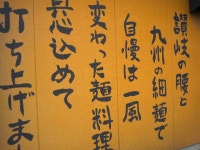 讃岐の腰と
九州の細麺で
自慢は一風
変わった麺料理
思込めて
打ち上げま